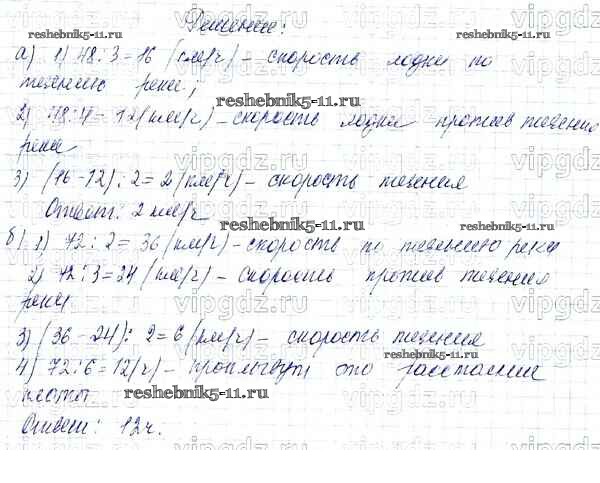 Решение:
а) 1) 48 : 3 = 16 (км/ч) – скорость лодки по
течению реки;
2) 48 : 4 = 12 (км/ч) – скорость лодки против течения
реки
3) (16 - 12) : 2 = 2 (км/ч) – скорость течения
Ответ: 2 км/ч
б) 1) 72 : 2 = 36 (км/ч) – скорость по течению реки
2) 72 : 3 = 24 (км/ч) – скорость против течения
реки
3) (36 - 24) : 2 = 6 (км/ч) – скорость течения
4) 72 : 6 = 12 (ч) – проплывут это расстояние
плоты
Ответ: 12 ч.
reshebnik5-11.ru
reshebnik5-11.ru
reshebnik5-11.ru
reshebnik5-11.ru
reshebnik5-11.ru
reshebnik5-11.ru
vipgdz.ru
vipgdz.ru
vipgdz.ru